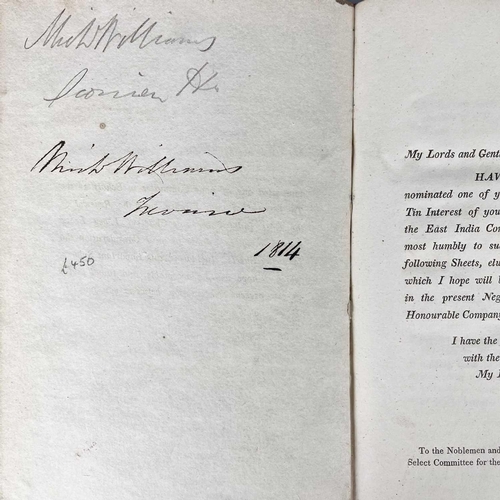 Mich Williams
Scorrier Ho
Mich Williams
Trevince
1814
£450
My Lords and Gentl
HAV
nominated one of y
Tin Interest of you
the East India Com
most humbly to su
following Sheets, elu
which I hope will b
in the present Neg
Honourable Company,
I have the
with the
My L
To the Noblemen and
Select Committee for the